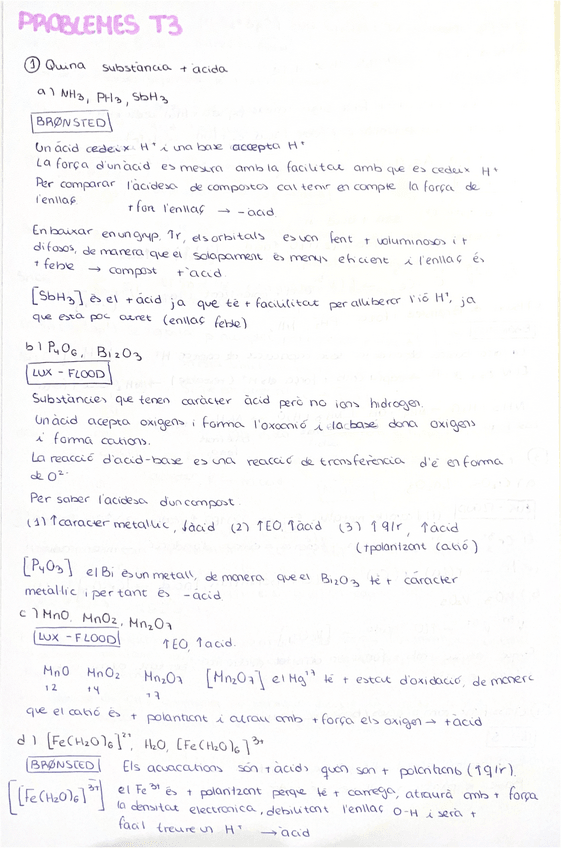 PROBLEMES T3
① Quina substància + àcida
a) NH₃, PH₃, SbH₃
BRØNSTED
Un àcid cedeix H⁺ i una base accepta H⁺
La força d'un àcid es mesura amb la facilitat amb que es cedeix H⁺
Per comparar l'àcidesa de compostos cal tenir en compte la força de
l'enllaç
+ fort l'enllaç → - àcid
En baixar en un grup, ↑r, els orbitals es van fent + voluminosos i +
difosos, de manera que el solapament és menys eficient i l'enllaç és
+ feble → compost + àcid
[SbH₃] és el + àcid ja que té + facilititat per alliberar l'ió H⁺, ja
que està poc atret (enllaç feble)
b) P₄O₆, Bi₂O₃
LUX - FLOOD
Substàncies que tenen caràcter àcid però no ions hidrogen.
Un àcid acepta oxigens i forma l'oxoanió i la base dona oxigens
i forma cations.
La reacció d'àcid-base es una reacció de transferència d'e⁻ en forma
de O²⁻
Per saber l'acidesa d'un compost.
(1) ↑caracter metal·lic, ↓àcid (2) ↑EO, ↑àcid (3) ↑q/r, ↑àcid
(+ polaritzant catió)
[P₄O₃] el Bi és un metall, de manera que el Bi₂O₃ té + caràcter
metàl·lic i per tant és - àcid
c) MnO, MnO₂, Mn₂O₇
LUX - FLOOD ↑EO, ↑àcid.
MnO MnO₂ Mn₂O₇ [Mn₂O₇] el Mg⁺⁷ té + estat d'oxidació, de manera
+2 +4 +7
que el catió és + polaritzant i atrau amb + força els oxigen → + àcid
d) [Fe(H₂O)₆]²⁺, H₂O, [Fe(H₂O)₆]³⁺
BRØNSTED Els aquacations són + àcids quan son + polaritzants (↑q/r).
[[Fe(H₂O)₆]³⁺] el Fe³⁺ és + polaritzant perque té + carrega, atraurà amb + força
la densitat electronica, debilitant l'enllaç O-H i serà +
facil treure un H⁺ → àcid